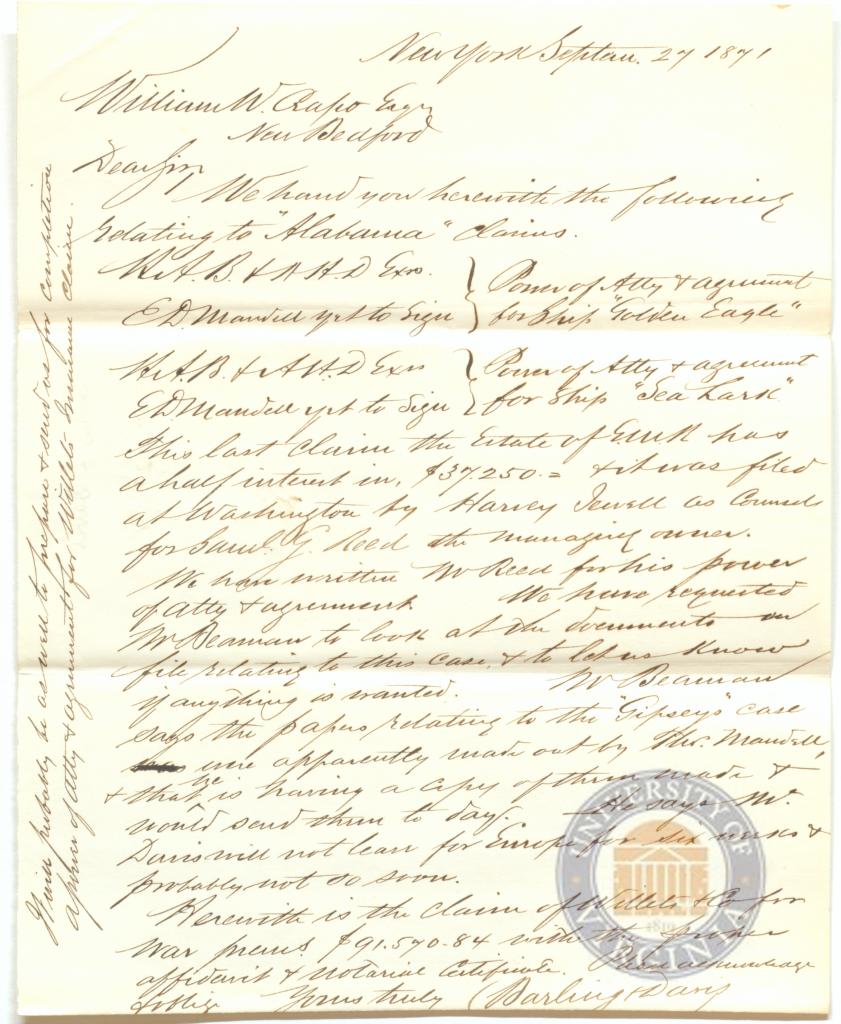 New York Septem. 27 1871
William W. Crapo Esqr
New Bedford
Dear Sir,
We hand you herewith the following
relating to "Alabama" claims.
H.A.B. & A H D Exrs. } Power of Atty & agreement
E.D. Mandell yet to sign } for Ship "Golden Eagle"
H.A.B. & A.H.D Exrs } Power of Atty & agreement
E.D. Mandell yet to sign } for Ship "Sea Lark"
This last claim the Estate of E.M.R has
a half interest in, $37.250.= & it was filed
at Washington by Harvey Jewell as Counsel
for Saml. G. Reed the managing owner.
We have written Mr Reed for his power
of Atty & agreement We have requested
Mr Beaman to look at the documents on
file, relating to this case, & to let us know
if anything is wanted. Mr Beaman
says the papers relating to the "Gipsey's" case
were apparently made out by Thos. Mandell,
& that he is having a copy of them made &
would send them to day. He says Mr.
Davis will not leave for Europe for six weeks &
probably not so soon.
Herewith is the claim of Willets & Co for
War prems. $91.570.84 with the proper
affidavit & notarial Certificate. Please acknowledge
& oblige Yours truly Barling & Davis
It will probably be as well to prepare & send us for completion
a power of Atty & agreement for Willets Insurance Claim.
UNIVERSITY OF VIRGINIA
1819